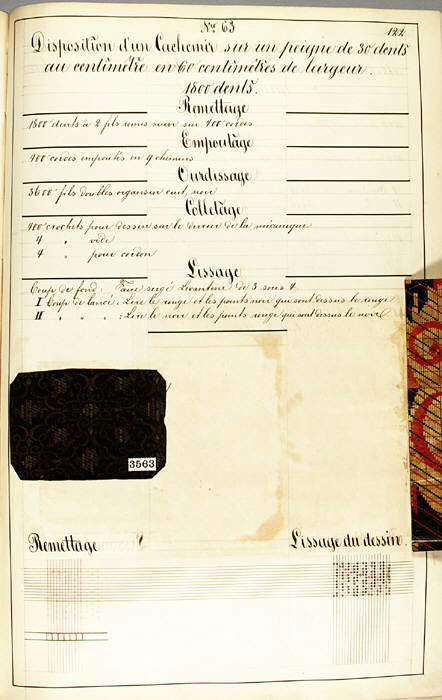 Nº 63
122
Disposition d'un Cachemir sur un peigne de 30 dents
au centimètre en 60 centimètres de largeur.
1800 dents.
Remettage
1800 dents à 2 fils remis suivi sur 400 cordes
Empoutage
400 cordes empoutés en 9 chemins
Ourdissage
3600 fils doubles organsin cuit, noir
Colletage
400 crochets pour dessin sur le derrier de la mécanique
4 " vide
4 " pour cordon
Lissage
Coup de fond: Faire sergé Levantine de 3 sous 1
I Coup de lancé: Lire le rouge et les points noir qui sont dessus le rouge
II " " " : Lire le noir et les points rouge qui sont dessus le noir
3563
Remettage
Lissage du dessin.